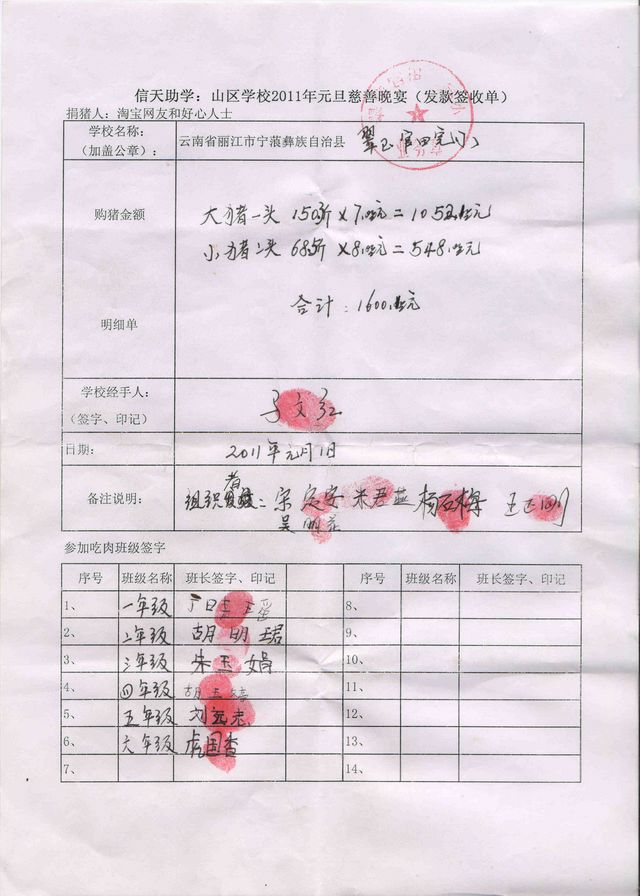 信天助学：山区学校2011年元旦慈善晚宴（发款签收单）
捐猪人：淘宝网友和好心人士
学校名称：
（加盖公章）：
云南省丽江市宁蒗彝族自治县 翠玉官田完小
购猪金额
大猪一头 150斤×7.02元=1053.00元
小猪2头 68斤×8.06元=548.00元
合计：1600.00元
明细单
学校经手人：
（签字、印记）
子文红
日期：
2011年元月1日
备注说明：
组织者 宋定安 朱君燕 杨石梅
吴
参加吃肉班级签字
序号 班级名称 班长签字、印记 序号 班级名称 班长签字、印记
1、 一年级 8、
2、 二年级 胡明珺 9、
3、 三年级 朱玉娟 10、
4、 四年级 胡 11、
5、 五年级 刘 12、
6、 六年级 虎国香 13、
7、 14、